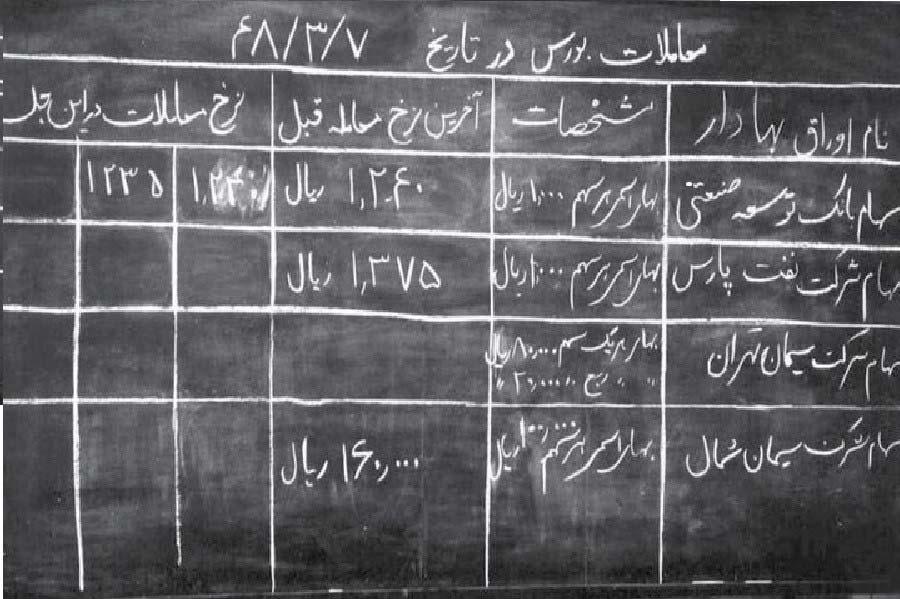 معاملات بورس در تاریخ ۴۸/۳/۷
نام اوراق بهادار مشخصات آخرین نرخ معامله قبل نرخ معاملات در این جلسه
سهام بانک توسعه صنعتی بهاء اسمی هر سهم ۱,۰۰۰ ریال ۱,۲۰۶۰ ریال ۱۲۳۵
سهام شرکت نفت پارس بهاء اسمی هر سهم ۱,۰۰۰ ریال ۱,۳۷۵ ریال
سهام شرکت سیمان تهران بهاء هر یک سهم ۸۰,۰۰۰ ریال
" " ربع " ۲۰,۰۰۰ "
سهام شرکت سیمان شمال بهاء اسمی هر سهم ۱۰۰,۰۰۰ ریال ۱۶۰,۰۰۰ ریال